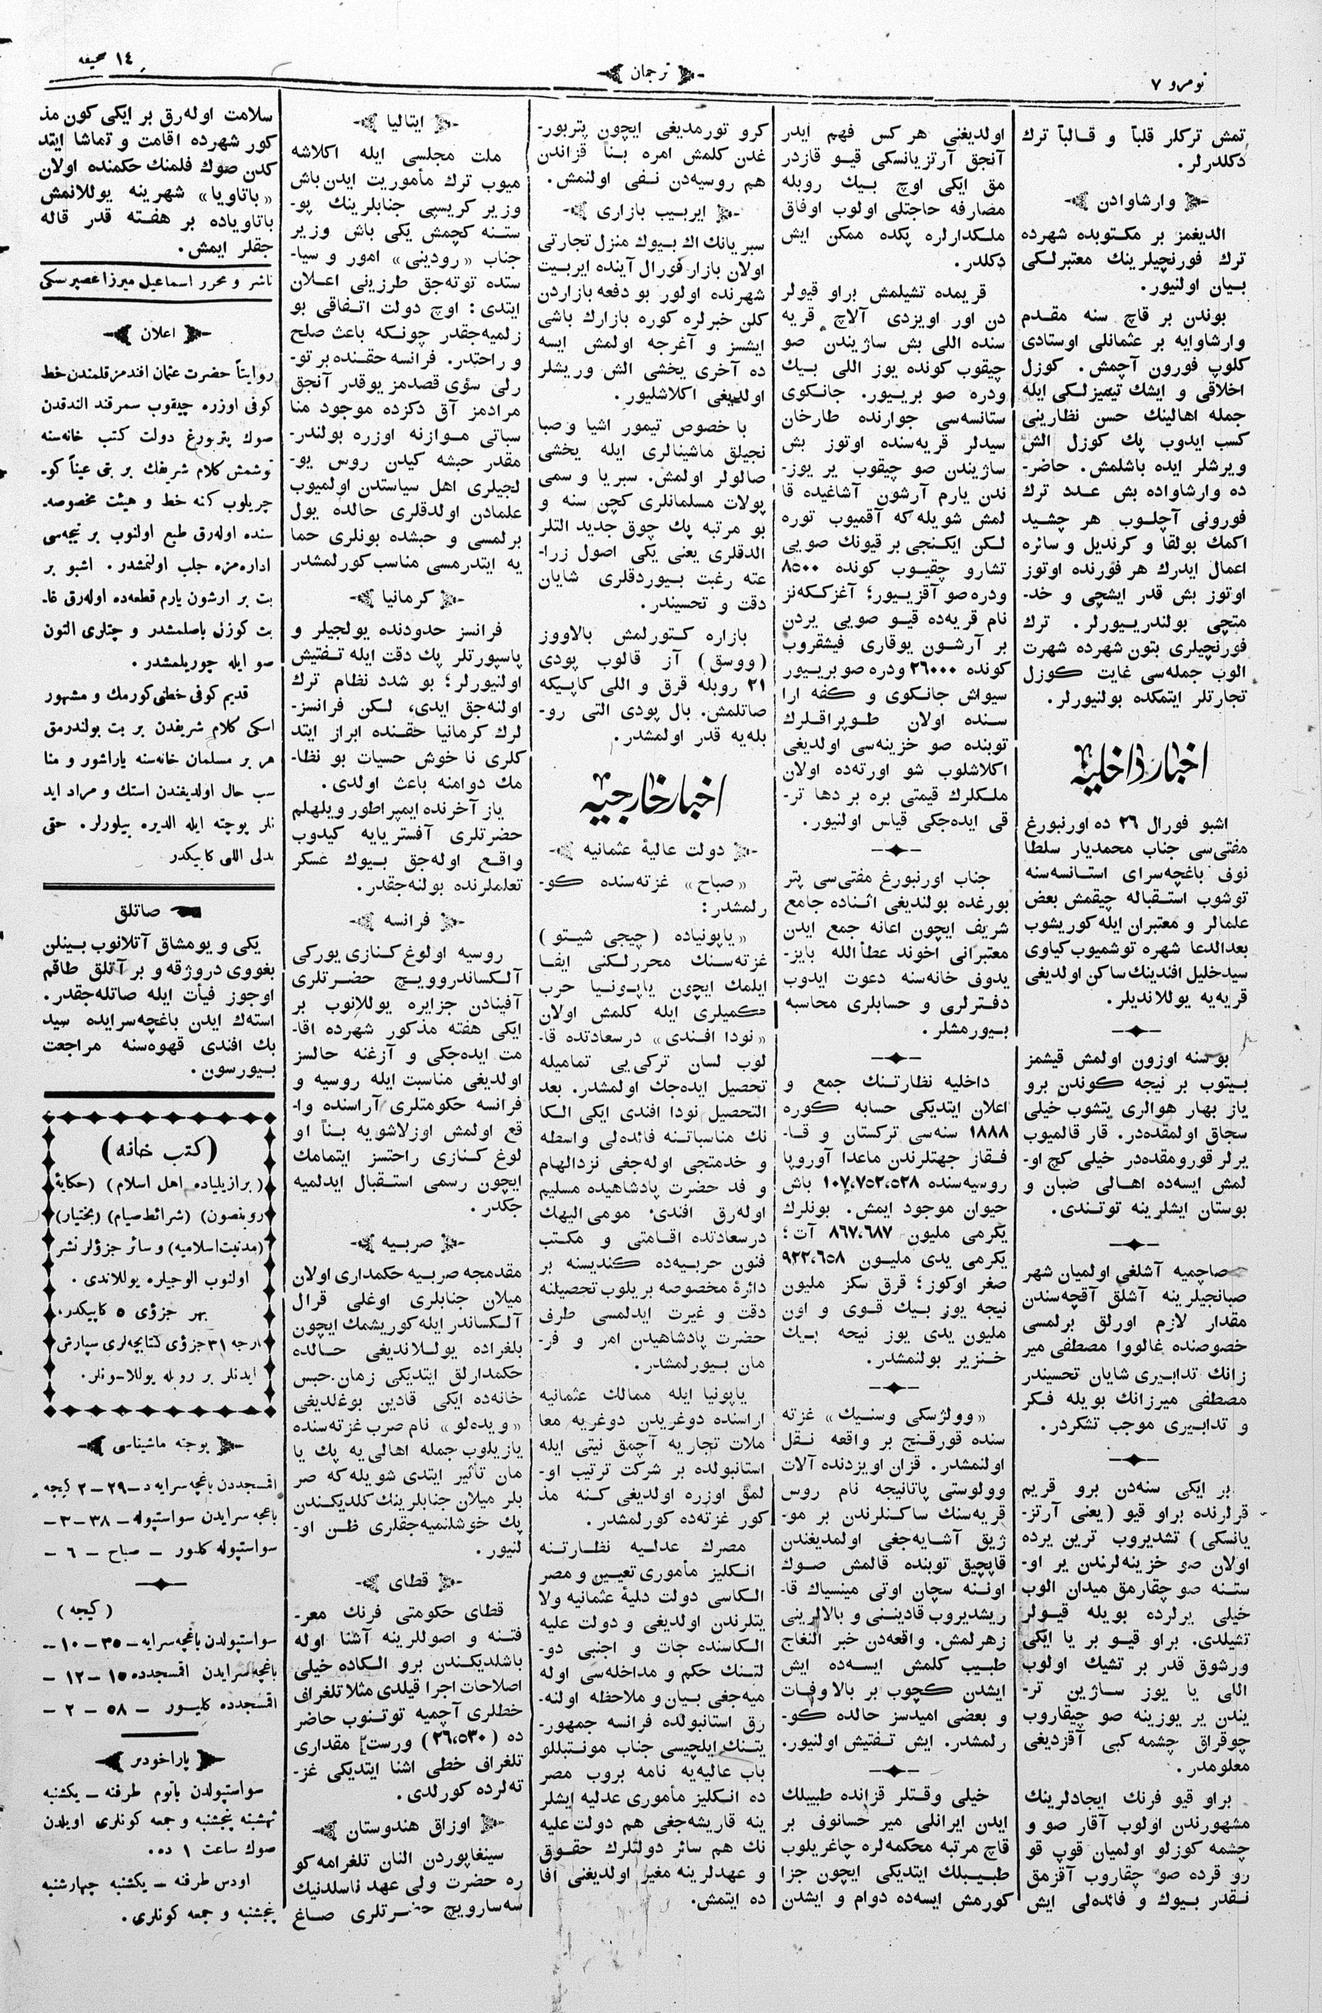 نومرو ٧
ترجمان
١٤ صحیفه
تمش تركلر قلباً و قالباً ترك
دكلدرلر.
وارشاوادن
الدیغمز بر مكتوبده شهرده
ترك فورنچیلرینك معتبرلكی
بیان اولنیور.
بوندن بر قاچ سنه مقدم
وارشاوایه بر عثمانلی اوستادی
كلوپ فورون آچمش. كوزل
اخلاقی و ایشك تیمیزلكی ایله
جمله اهالینك حسن نظارینی
كسب ایدوب پك كوزل الش
ویرشلر ایده باشلمش. حاضر-
ده وارشاواده بش عدد ترك
فورونی آچلوب هر چشید
اكمك بولقا و كرندیل و سائره
اعمال ایدرك هر فورنده اوتوز
اوتوز بش قدر ایشچی و خد-
متچی بولندرییورلر. ترك
فورنچیلری بتون شهرده شهرت
الوب جمله‌سی غایت كوزل
تجارتلر ایتمكده بولنیورلر.
اخبار داخلیه
اشبو فورال ٢٦ ده اورنبورغ
مفتی‌سی جناب محمدیار سلطا
نوف باغچه‌سرای استانسه‌سنه
توشوب استقباله چیقمش بعض
علمالر و معتبران ایله كوریشوب
بعدالدعا شهره توشمیوب كیاوی
سیدخلیل افندینك ساكن اولدیغی
قریه‌یه یوللاندیلر.
بو سنه اوزون اولمش قیشمز
بیتوب بر نیجه كوندن برو
یاز بهار هوالری یتشوب خیلی
سجاق اولمقده‌در. قار قالمیوب
یرلر قورومقده‌در خیلی كچ او-
لمش ایسه‌ده اهالی ضبان و
بوستان ایشلرینه توتندی.
صاچمیه آشلغی اولمیان شهر
صبانجیلرینه آشلق آقچه‌سندن
مقدار لازم اورلق برلمسی
خصوصنده غالووا مصطفی میر
زانك تدابیری شایان تحسیندر
مصطفی میرزانك بویله فكر
و تدابیری موجب تشكردر.
بر ایكی سنه‌دن برو قریم
قرلرنده براو قیو (یعنی آرتز-
یانسكی) تشدیروب ترین یرده
اولان صو خزینه‌لرندن یر او-
ستنه صو چقارمق میدان الوب
خیلی یرلرده بویله قیولر
تشیلدی. براو قیو بر یا ایكی
ورشوق قدر بر تشیك اولوب
اللی یا یوز ساژین تر-
یندن یر یوزینه صو چیقاروب
چوقراق چشمه كبی آقزدیغی
معلومدر.
براو قیو فرنك ایجادلرینك
مشهورندن اولوب آقار صو و
چشمه كوزلو اولمیان قوپ قو
رو قرده صو چقاروب آقزمق
نقدر بیوك و فائده‌لی ایش
اولدیغنی هر كس فهم ایدر
آنجق آرتزیانسكی قیو قازدر
مق ایكی اوچ بیك روبله
مضارفه حاجتلی اولوب اوفاق
ملكدارلره پكده ممكن ایش
دكلدر.
قریمده تشیلمش براو قیولر
دن اور اویزدی آلاچ قریه
سنده اللی بش ساژیندن صو
چیقوب كونده یوز اللی بیك
ودره صو بریور. جانكوی
ستانسه‌سی جوارنده طارخان
سیدلر قریه‌سنده اوتوز بش
ساژیندن صو چیقوب یر یوز-
ندن یارم آرشون آشاغیده قا
لمش شویله‌كه آقمیوب توره
لكن ایكنجی بر قیونك صویی
تشارو چقیوب كونده ٨٥٠٠
ودره صو آقزییور؛ آغزككه‌نز
نام قریه‌ده قیو صویی یردن
بر آرشون یوقاری فیشقروب
كونده ٢٦٠٠٠ ودره صو بریور
سیواش جانكوی و كفه ارا
سنده اولان طوپراقلرك
توبنده صو خزینه‌سی اولدیغی
اكلاشلوب شو اورته‌ده اولان
ملكلرك قیمتی بره بر دها تر-
قی ایده‌جكی قیاس اولنیور.
جناب اورنبورغ مفتی‌سی پتر
بورغده بولندیغی اثناده جامع
شریف ایچون اعانه جمع ایدن
معتبرانی اخوند عطأالله بایز-
یدوف خانه‌سنه دعوت ایدوب
دفترلری و حسابلری محاسبه
بیورمشلر.
داخلیه نظارتنك جمع و
اعلان ایتدیكی حسابه كوره
١٨٨٨ سنه‌سی تركستان و قا-
فقاز جهتلرندن ماعدا آوروپا
روسیه‌سنده ١٠٧,٧٥٢,٥٢٨ باش
حیوان موجود ایمش. بونلرك
یكرمی ملیون ٨٦٧,٦٨٧ آت؛
یكرمی یدی ملیون ٩٢٢,٦٥٨
صغر اوكوز؛ قرق سكز ملیون
نیجه یوز بیك قوی و اون
ملیون یدی یوز نیجه بیك
خنزیر بولنمشدر.
«وولژسكی وسنیك» غزته
سنده قورقنچ بر واقعه نقل
اولنمشدر. قزان اویزدنده آلات
وولوستی پاتانیجه نام روس
قریه‌سنك ساكنلرندن بر مو-
ژیق آشایه‌جغی اولمدیغندن
قاپچیق توبنده قالمش صوك
اوننه سچان اوتی مینسیاك قا-
ریشدیروب قادیننی و بالالرینی
زهرلمش. واقعه‌دن خبر النغاج
طبیب كلمش ایسه‌ده ایش
ایشدن كچوب بر بالا وفات
و بعضی امیدسز حالده كو-
رلمشدر. ایش تفتیش اولنیور.
خیلی وقتلر قزانده طبیبلك
ایدن ایرانلی میر خسانوف بر
قاچ مرتبه محكمه‌لره چاغریلوب
طبیبلك ایتدیكی ایچون جزا
كورمش ایسه‌ده دوام و ایشدن
كرو تورمدیغی ایچون پتربور-
غدن كلمش امره بناً قزاندن
هم روسیه‌دن نفی اولنمش.
ایربیب بازاری
سبریانك اك بیوك منزل تجارتی
اولان بازار فورال آینده ایربیت
شهرنده اولور بو دفعه بازاردن
كلن خبرلره كوره بازارك باشی
ایشسز و آغرجه اولمش ایسه
ده آخری یخشی الش وریشلر
اولدیغی اكلاشلیور.
با خصوص تیمور اشیا و صبا
نجیلق ماشینالری ایله یخشی
صالولر اولمش. سبریا و سمی
پولات مسلمانلری كچن سنه و
بو مرتبه پك چوق جدید التلر
الدقلری یعنی یكی اصول زرا-
عته رغبت بیوردقلری شایان
دقت و تحسیندر.
بازاره كتورلمش بالاووز
(ووسق) آز قالوب پودی
٢١ روبله قرق و اللی كاپیكه
صاتلمش. بال پودی التی رو-
بله‌یه قدر اولمشدر.
اخبار خارجیه
دولت عالیۀ عثمانیه
«صباح» غزته‌سنده كو-
رلمشدر:
«یاپونیاده (چیجی شیتو)
غزته‌سنك محررلكنی ایفا
ایلمك ایچون یاپونیا حرب
كمیلری ایله كلمش اولان
«نودا افندی» درسعادتده قا-
لوب لسان تركی‌یی تمامیله
تحصیل ایده‌جك اولمشدر. بعد
التحصیل نودا افندی ایكی الكا
نك مناسباتنه فائده‌لی واسطه
و خدمتجی اوله‌جغی نزدالهام
و فد حضرت پادشاهیده مسلیم
اوله‌رق افندی‌ٔ مومی الیهك
درسعادتده اقامتی و مكتب
فنون حربیه‌ده كندیسنه بر
دائرۀ مخصوصه بریلوب تحصیلنه
دقت و غیرت ایدلمسی طرف
حضرت پادشاهیدن امر و فر-
مان بیورلمشدر.
یاپونیا ایله ممالك عثمانیه
اراسنده دوغریدن دوغریه معا
ملات تجاریه آچمق نیتی ایله
استانبولده بر شركت ترتیب او-
لمق اوزره اولدیغی كنه مذ
كور غزته‌ده كورلمشدر.
مصرك عدلیه نظارتنه
انكلیز مأموری تعیین و مصر
الكاسی دولت دلیۀ عثمانیه ولا
یتلرندن اولدیغی و دولت علیه
الكاسنده جات و اجنبی دو-
لتنك حكم و مداخله‌سی اوله
میه‌جغی بیان و ملاحظه اولنه-
رق استانبولده فرانسه جمهور-
یتنك ایلچیسی جناب مونتبللو
باب عالیه‌یه نامه بروب مصر
ده انكلیز مأموری عدلیه ایشلر
ینه قاریشه‌جغی هم دولت علیه
نك هم سائر دولتلرك حقوق
و عهدلرینه مغیر اولدیغنی افا
ده ایتمش.
ایتالیا
ملت مجلسی ایله اكلاشه
میوب ترك مأموریت ایدن باش
وزیر كریسپی جنابلرینك پو-
ستنه كچمش یكی باش وزیر
جناب «رودینی» امور و سیا-
ستده توته‌جق طرزینی اعلان
ایتدی: اوچ دولت اتفاقی بو
زلمیه‌جقدر چونكه باعث صلح
و راحتدر. فرانسه حقنده برتو-
رلی سؤی قصدمز یوقدر آنجق
مرادمز آق دكزده موجود منا
سباتی موازنه اوزره بولندر-
مقدر حبشه كیدن روس یو-
لجیلری اهل سیاستدن اولمیوب
علمادن اولدقلری حالده یول
برلمسی و حبشده بونلری حما
یه ایتدرمسی مناسب كورلمشدر
كرمانیا
فرانسز حدودنده یولجیلر و
پاسپورتلر پك دقت ایله تفتیش
اولنیورلر؛ بو شدد نظام ترك
اولنه‌جق ایدی، لكن فرانسز-
لرك كرمانیا حقنده ابراز ایتد
كلری نا خوش حسیات بو نظا-
مك دوامنه باعث اولدی.
یاز آخرنده ایمپراطور ویلهلم
حضرتلری آفستریایه كیدوب
واقع اوله‌جق بیوك عسكر
تعلملرنده بولنه‌جقدر.
فرانسه
روسیه اولوغ كنازی یوركی
آلكساندروویچ حضرتلری
آفینادن جزایره یوللانوب بر
ایكی هفته مذكور شهرده اقا-
مت ایده‌جكی و آزغنه حالسز
اولدیغی مناسبت ایله روسیه و
فرانسه حكومتلری آراسنده وا-
قع اولمش اوزلاشویه بناً او
لوغ كنازی راحتسز ایتمامك
ایچون رسمی استقبال ایدلمیه
جكدر.
صربیه
مقدمجه صربیه حكمداری اولان
میلان جنابلری اوغلی قرال
آلكساندر ایله كوریشمك ایچون
بلغراده یوللاندیغی حالده
حكمدارلق ایتدیكی زمان حبس
خانه‌ده ایكی قادین بوغلدیغی
«ویده‌لو» نام صرب غزته‌سنده
یازیلوب جمله اهالی‌یه پك یا
مان تأثیر ایتدی شویله‌كه صر
بلر میلان جنابلرینك كلدیكندن
پك خوشلنمیه‌جقلری ظن او-
لنیور.
قطای
قطای حكومتی فرنك معر-
فتنه و اصوللرینه آشنا اوله
باشلدیكندن برو الكاده خیلی
اصلاحات اجرا قیلدی مثلا تلغراف
خطلری آچمیه توتنوب حاضر
ده (٢٦,٥٣٠) ورست مقداری
تلغراف خطی اشنا ایتدیكی غز-
ته‌لرده كورلدی.
اوزاق هندوستان
سینغاپوردن النان تلغرامه‌كو
ره حضرت ولی عهد ناسلدنیك
سه‌سارویچ حضرتلری صاغ
سلامت اوله‌رق بر ایكی كون مذ
كور شهرده اقامت و تماشا ایتد
كدن صوك فلمنك حكمنده اولان
«باتاویا» شهرینه یوللانمش
باتاویاده بر هفته قدر قاله
جقلر ایمش.
ناشر و محرر اسماعیل میرزا غصپرنسكی
اعلان
روایتاً حضرت عثمان افندمز قلمندن خط
كوفی اوزره چیقوب سمرقند الندقدن
صوك پتربورغ دولت كتب خانه‌سنه
توشمش كلام شریفك بر بتی عیناً كو-
چریلوب كنه خط و هیئت مخصوصه-
سنده اوله‌رق طبع اولنوب بر نیجه‌سی
اداره‌مزه جلب اولنمشدر. اشبو بر
بت بر ارشون یارم قطعه‌ده اوله‌رق غا-
یت كوزل باصلمشدر و چتلری التون
صو ایله چوریلمشدر.
قدیم كوفی خطنی كورمك و مشهور
اسكی كلام شریفدن بر بت بولندرمق
هر بر مسلمان خانه‌سنه یاراشور و منا
سب حال اولدیغندن استك و مراد اید
نلر پوچته ایله الدیره بیلورلر. حقی
بدلی اللی كاپیكدر
صاتلق
یكی و یومشاق آتلانوب بینلن
بغووی دروژقه و بر آتلق طاقم
اوجوز فیأت ایله صاتله‌جقدر.
استه‌ك ایدن باغچه‌سرایده سید
بك افندی قهوه‌سنه مراجعت
بیورسون.
(كتب خانه)
(برازیلیاده اهل اسلام) (حكایۀ
روبنصون) (شرائط صیام) (بختیار)
(مدنیت اسلامیه) و سائر جزؤلر نشر
اولنوب الوجیلره یوللاندی.
بهر جزؤی ٥ كاپیكدر.
ارجه ٣١ جزؤی كتابچه‌لری سپارش
ایدنلر بر روبله یوللاسونلر.
پوچته ماشیناسی
اقمسجددن باغچه سرایه د–٢٩–٢ كیجه
باغچه سرایدن سواستپوله–٣٨–٣–
سواستپوله كلور – صباح – ٦ –
(كیجه)
سواستپولدن باغچه سرایه–٣٥–١٠–
باغچه سرایدن اقمسجدده ١٥–١٢–
اقمسجدده كلیور – ٥٨–٢–
پاراخودلر
سواستپولدن باتوم طرفنه – یكشنبه
شهشنبه پنجشنبه و جمعه كونلری اویلدن
صوك ساعت ١ ده.
اودس طرفنه – یكشنبه چهارشنبه
پنجشنبه و جمعه كونلری.